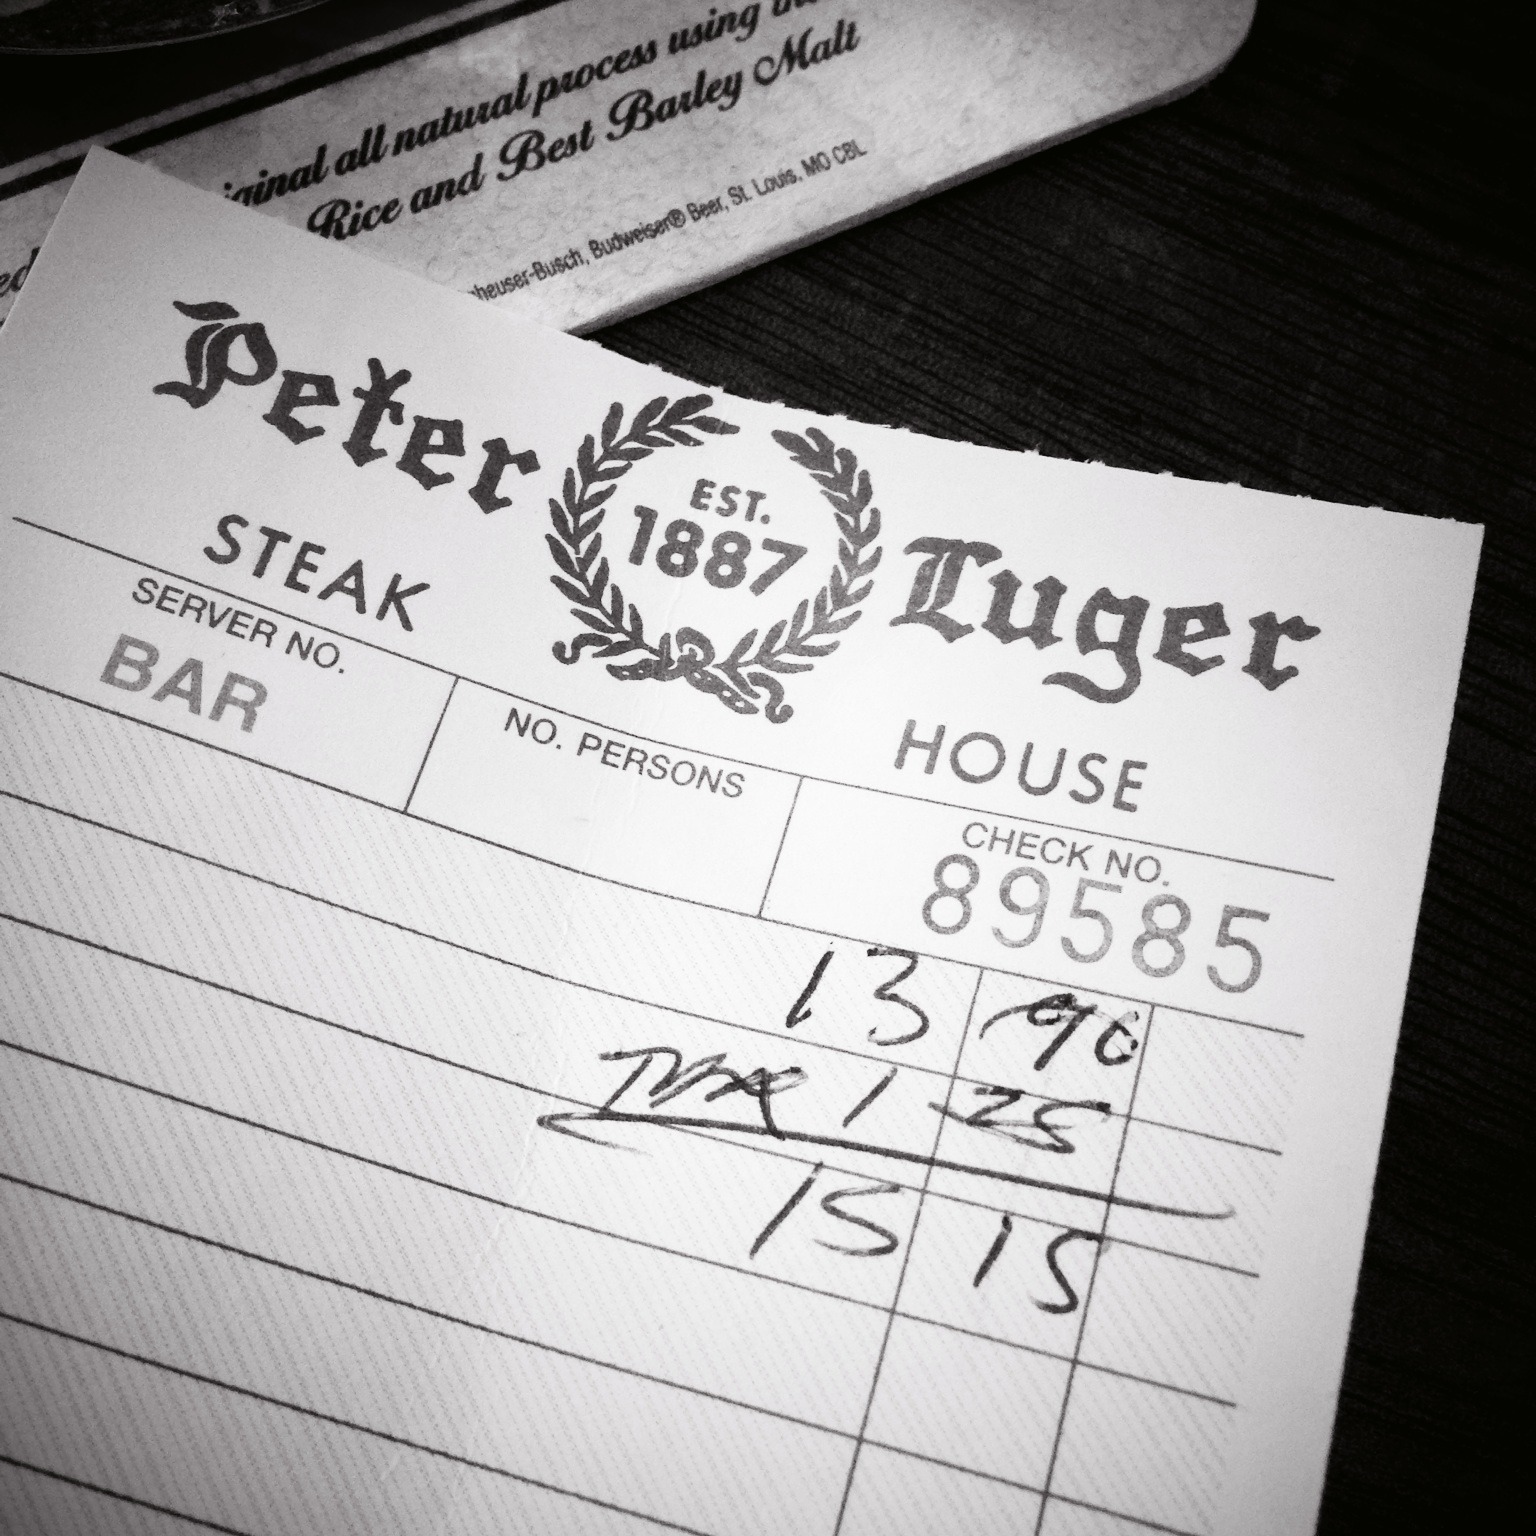 iginal all natural process using the
Rice and Best Barley Malt
heuser-Busch, Budweiser® Beer, St. Louis, MO CBL
Peter Luger
EST.
1887
STEAK HOUSE
SERVER NO. NO. PERSONS CHECK NO.
BAR 89585
13 90
TAX 1 25
15 15